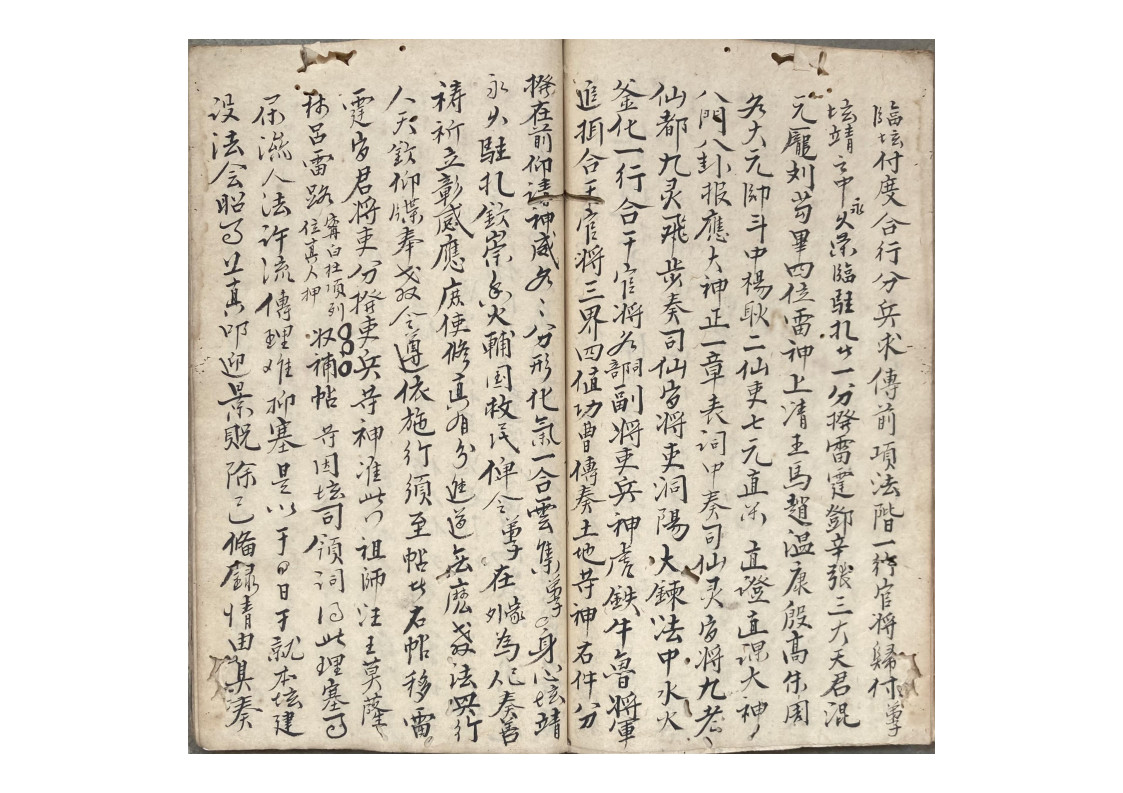 臨坛付度合行分兵求傳前項法階一行官将歸付𫹋
坛靖之中永久景臨駐扎廿一分撥雷霆鄧辛張三大天君混
元龐刘苟畢四位雷神上清王馬趙温康殷高朱周
各大元帥斗中楊耿二仙吏七元直 直證直 大神
八門八卦报應大神正一章表詞中奏司仙灵官将九老
仙都九灵飛步奏司仙官将吏洞陽大鍊法中水火
釜化一行合干官将各 副将吏兵神虎鉄牛魯将軍
進 合干官将三界四值功曹傳奏土地等神右件分
撥在前仰請神威各各分形化氣一合雲集 身心坛靖
永久駐扎欽崇香火輔国救民俾令 在 為凡奏告
祷祈立彰感應庶使修真有分進道無魔教法興行
人天欽仰牒奉教令遵依施行須至帖者右帖移雷
霆官君将吏分撥吏兵等神准此 祖師汪王莫薩
林呂雷路 位真人押 收補帖 等因坛司領詞得此理塞
 法許流傳理难抑塞是以于 月日于就本坛建
設法会昭 上真叩迎景貺除已備録情由具奏